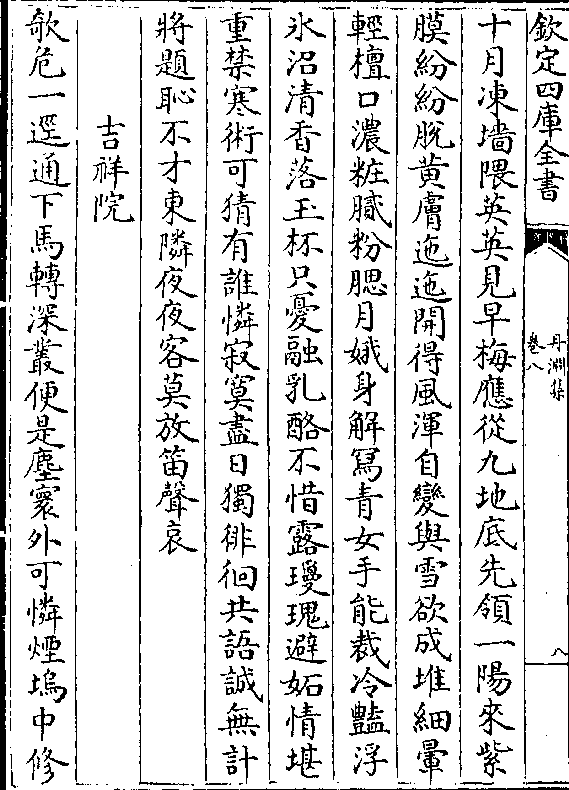 欽定四庫全書
丹淵集
卷八
八
十月凍墻隈英英見早梅應從九地底先領一陽來紫
膜紛紛脫黃膚迤迤開得風渾自變與雪欲成堆細暈
輕檀口濃粧膩粉腮月娥身解冩青女手能裁冷豔浮
氷沼清香落玉杯只憂融乳酪不惜露瓊瑰避妬情堪
重禁寒術可猜有誰憐寂寞盡日獨徘徊共語誠無計
將題恥不才東隣夜夜客莫放笛聲哀
吉祥院
欹危一逕通下馬轉深叢便是塵寰外可憐煙塢中修